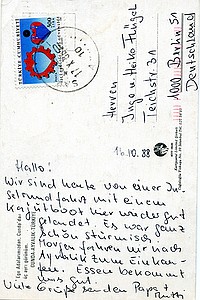 TÜRKİYE CUMHURİYETİ
Herren
Ingo u. Heiko Flügel
Teichstr. 31
1000 Berlin 51
Deutschland
16.10.88
Hallo!
Wir sind heute von einer In-
selrundfahrt mit einem
Kajütboot hier wieder gut
gelandet. Es war ganz
schön stürmisch.
Morgen fahren wir nach
Ayvalik zum Einkau-
fen. Essen bekommt
uns gut.
Viele Grüße senden Papa +
Ruth